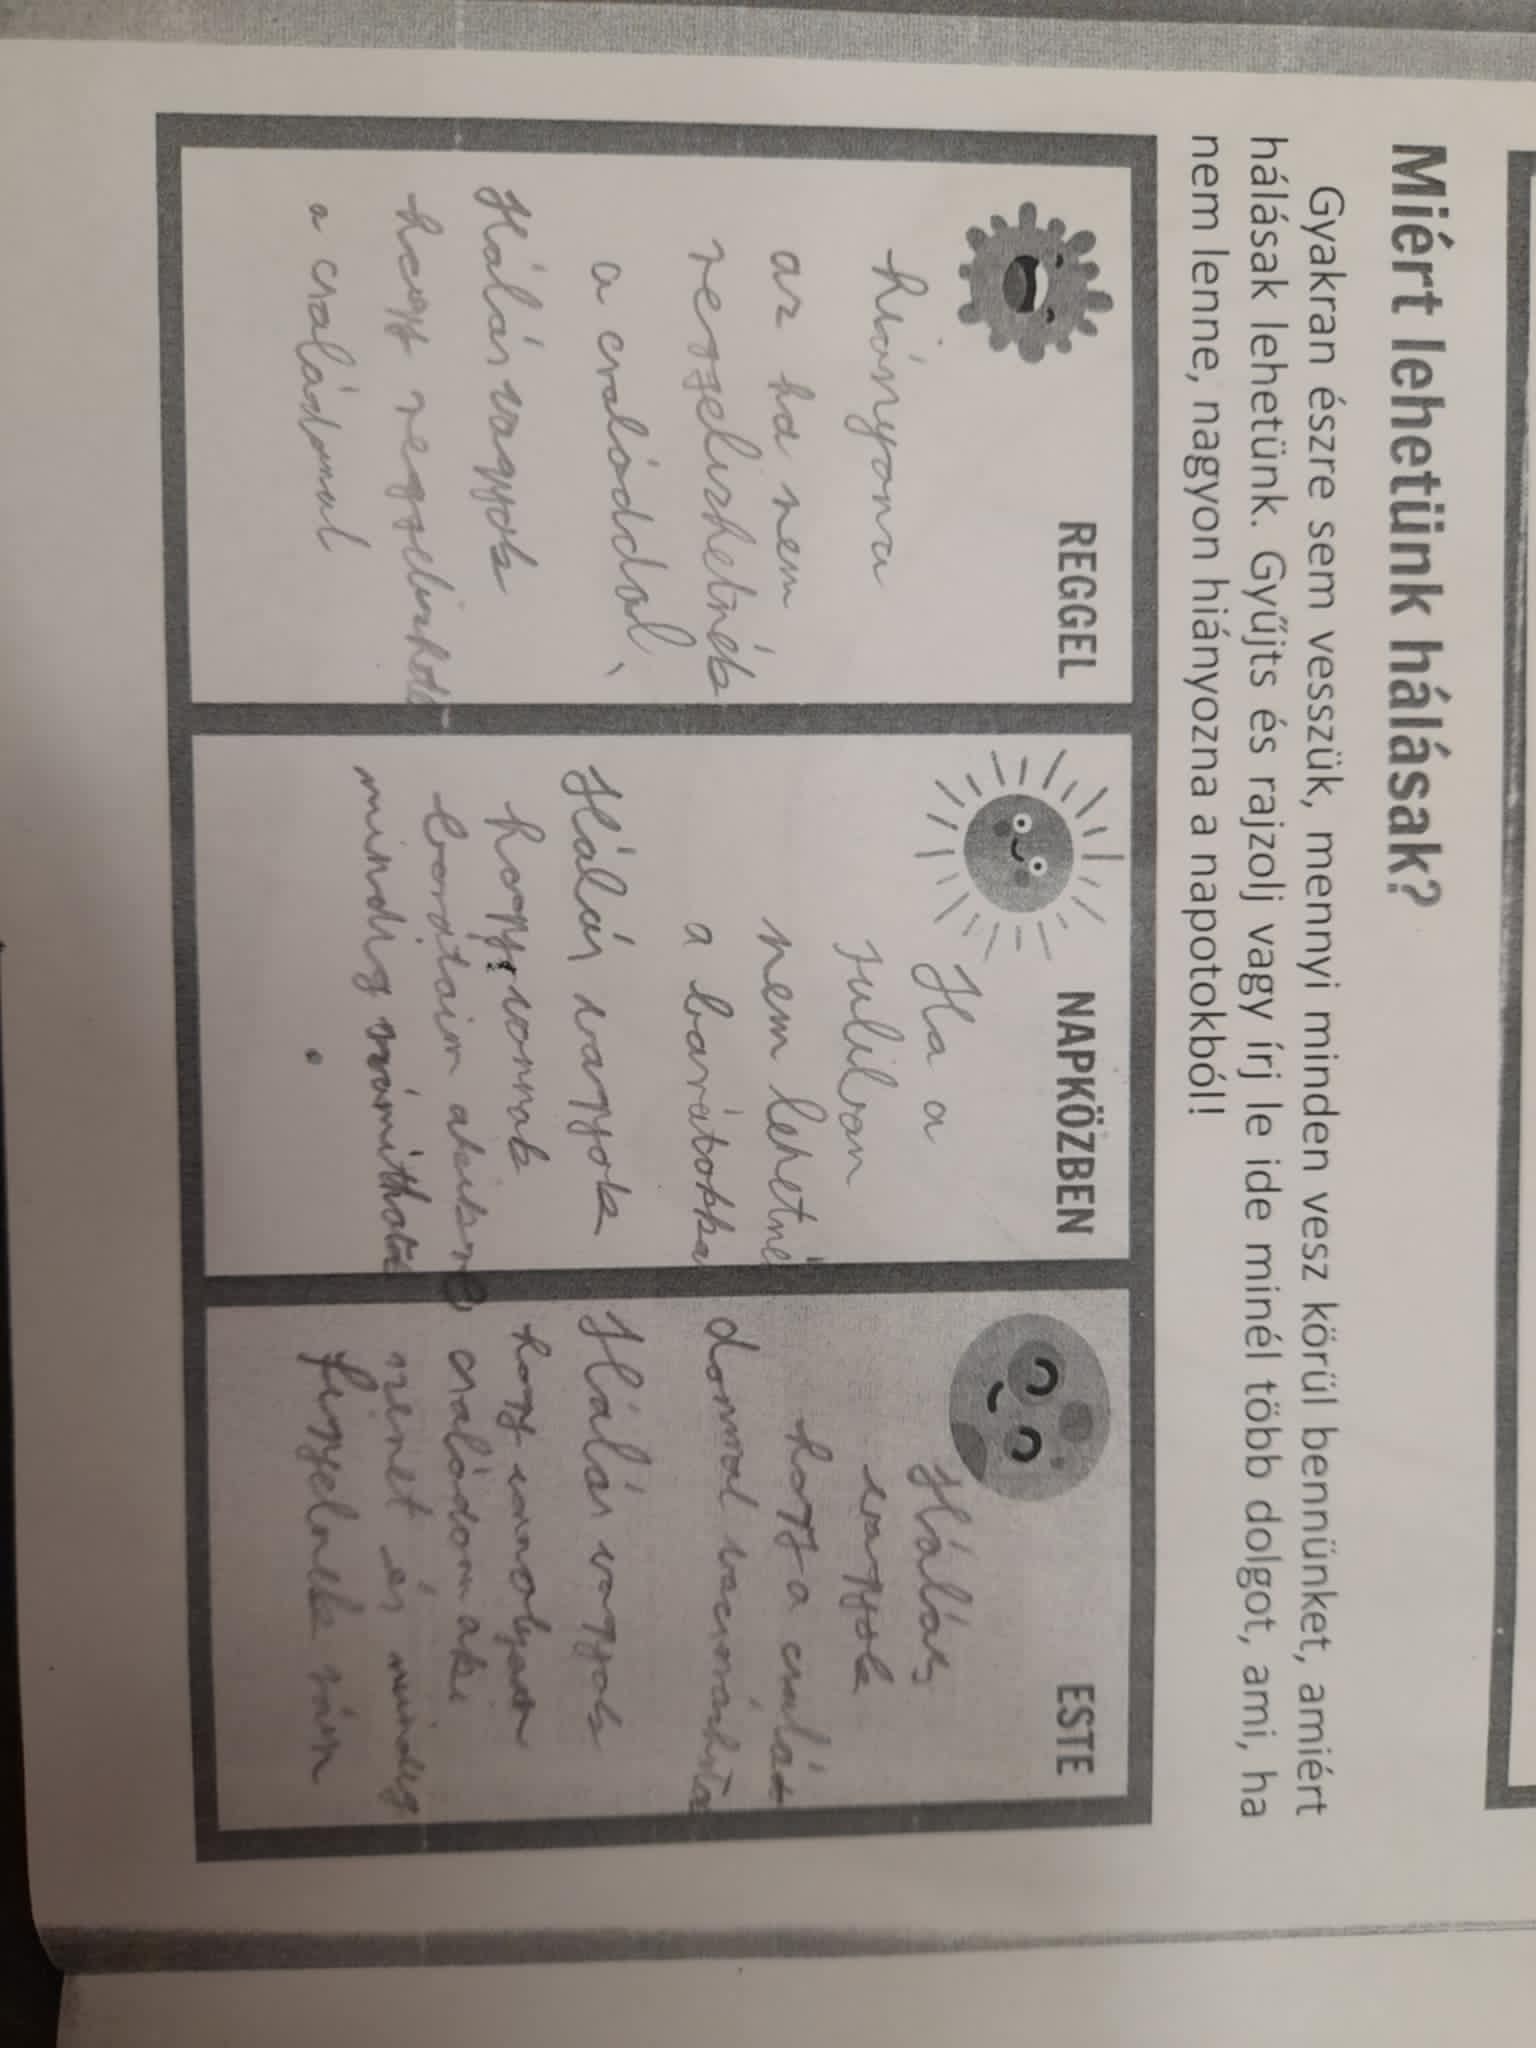 Miért lehetünk hálásak?
Gyakran észre sem vesszük, mennyi minden vesz körül bennünket, amiért
hálásak lehetünk. Gyűjts és rajzolj vagy írj le ide minél több dolgot, ami, ha
nem lenne, nagyon hiányozna a napotokból!
REGGEL
hiányona
az ha nem
reggelizhetnék
a családdal,
Hálás vagyok
hogy reggelizhetek
a családmal
NAPKÖZBEN
Ha a
suliban
nem lehetné
a barátokka
Hálás vagyok
hogy vannak
barátaim akikre
mindig számíthatok
ESTE
Hálás
vagyok
hogy a csalá
dommal vacsorázhata
Hálás vagyok
hogy van olyan
családom aki
szeret és mindig
figyelnek rám